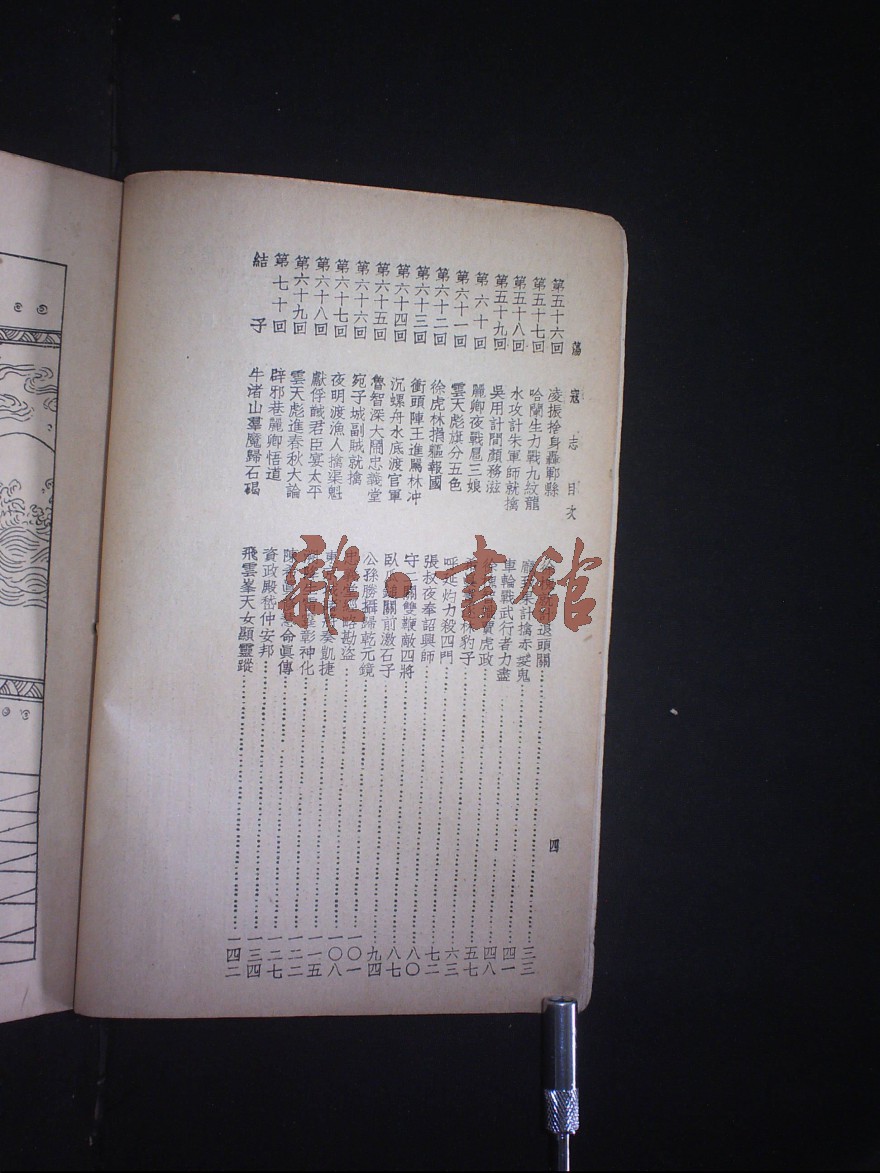 蕩寇志目次 四
第五十六回 凌振捨身轟鄆縣 退頭關 三三
第五十七回 哈蘭生力戰九紋龍 計擒赤髮鬼 四一
第五十八回 水攻計朱軍師就擒 車輪戰武行者力盡 四八
第五十九回 吳用計間顏務滋 虎政 五七
第六十回 麗卿夜戰扈三娘 林豹子 六三
第六十一回 雲天彪旗分五色 呼延灼力殺四門 七二
第六十二回 徐虎林捐軀報國 張叔夜奉詔興師 八〇
第六十三回 衝頭陣王進罵林冲 守二關雙鞭敵四將 八七
第六十四回 沉螺舟水底渡官軍 臥瓜錘關前激石子 九四
第六十五回 魯智深大鬧忠義堂 公孫勝攝歸乾元鏡 一〇一
第六十六回 宛子城副賊就擒 勘盜 一〇八
第六十七回 夜明渡漁人擒渠魁 東 奏凱捷 一一五
第六十八回 獻俘馘君臣宴太平 彰神化 一二二
第六十九回 雲天彪進春秋大論 陳希真 慧命眞傳 一二七
第七十回 辟邪巷麗卿悟道 資政殿嵇仲安邦 一三四
結子 牛渚山羣魔歸石碣 飛雲峯天女顯靈蹤 一四二
雜·書館